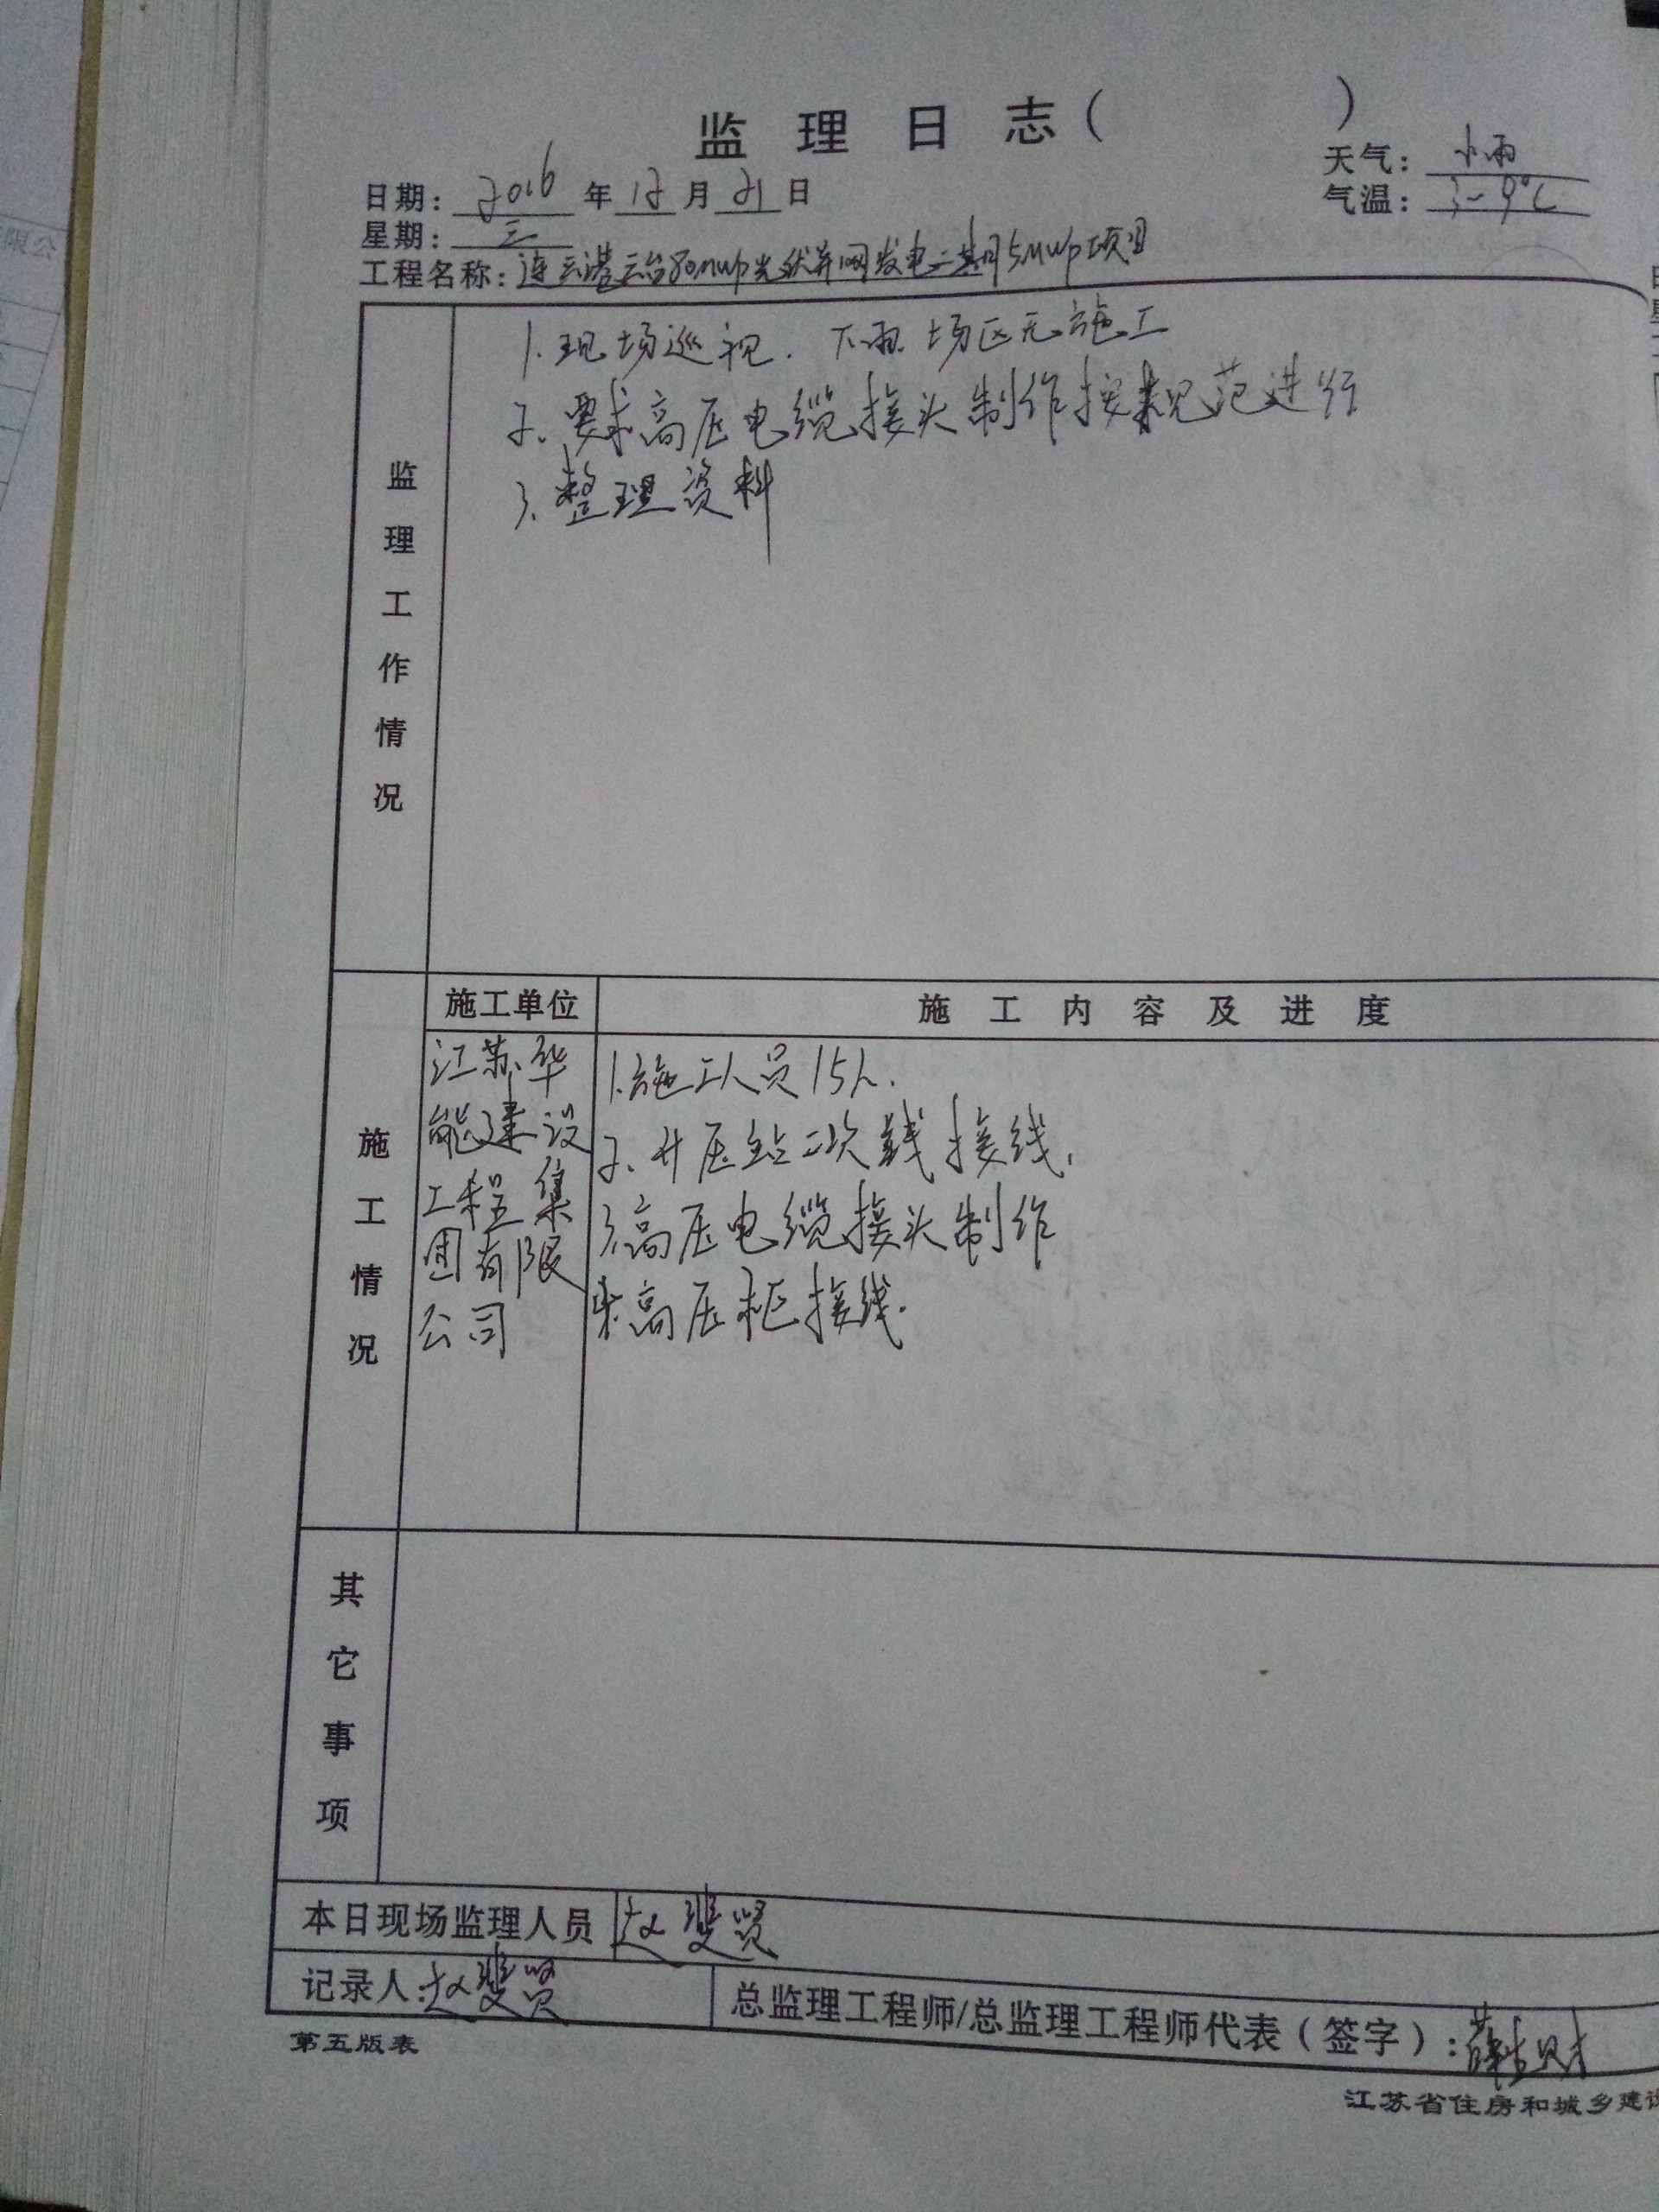 监理日志（ ）
天气：小雨
日期：2016年12月21日
气温：3~9℃
星期：三
工程名称：连云港云台80MWp光伏并网发电二期5MWp项目
监理工作情况
1.现场巡视.下雨.场区无施工
2.要求高压电缆接头制作按规范进行
3.整理资料
施工情况
施工单位
施工内容及进度
江苏华
能建设
工程集
团有限
公司
1.施工人员15人.
2.升压站二次线接线.
3.高压电缆接头制作
高压柜接线.
其它事项
本日现场监理人员 赵斐贤
记录人:赵斐贤
总监理工程师/总监理工程师代表（签字）:薛
第五版表
江苏省住房和城乡建
限公